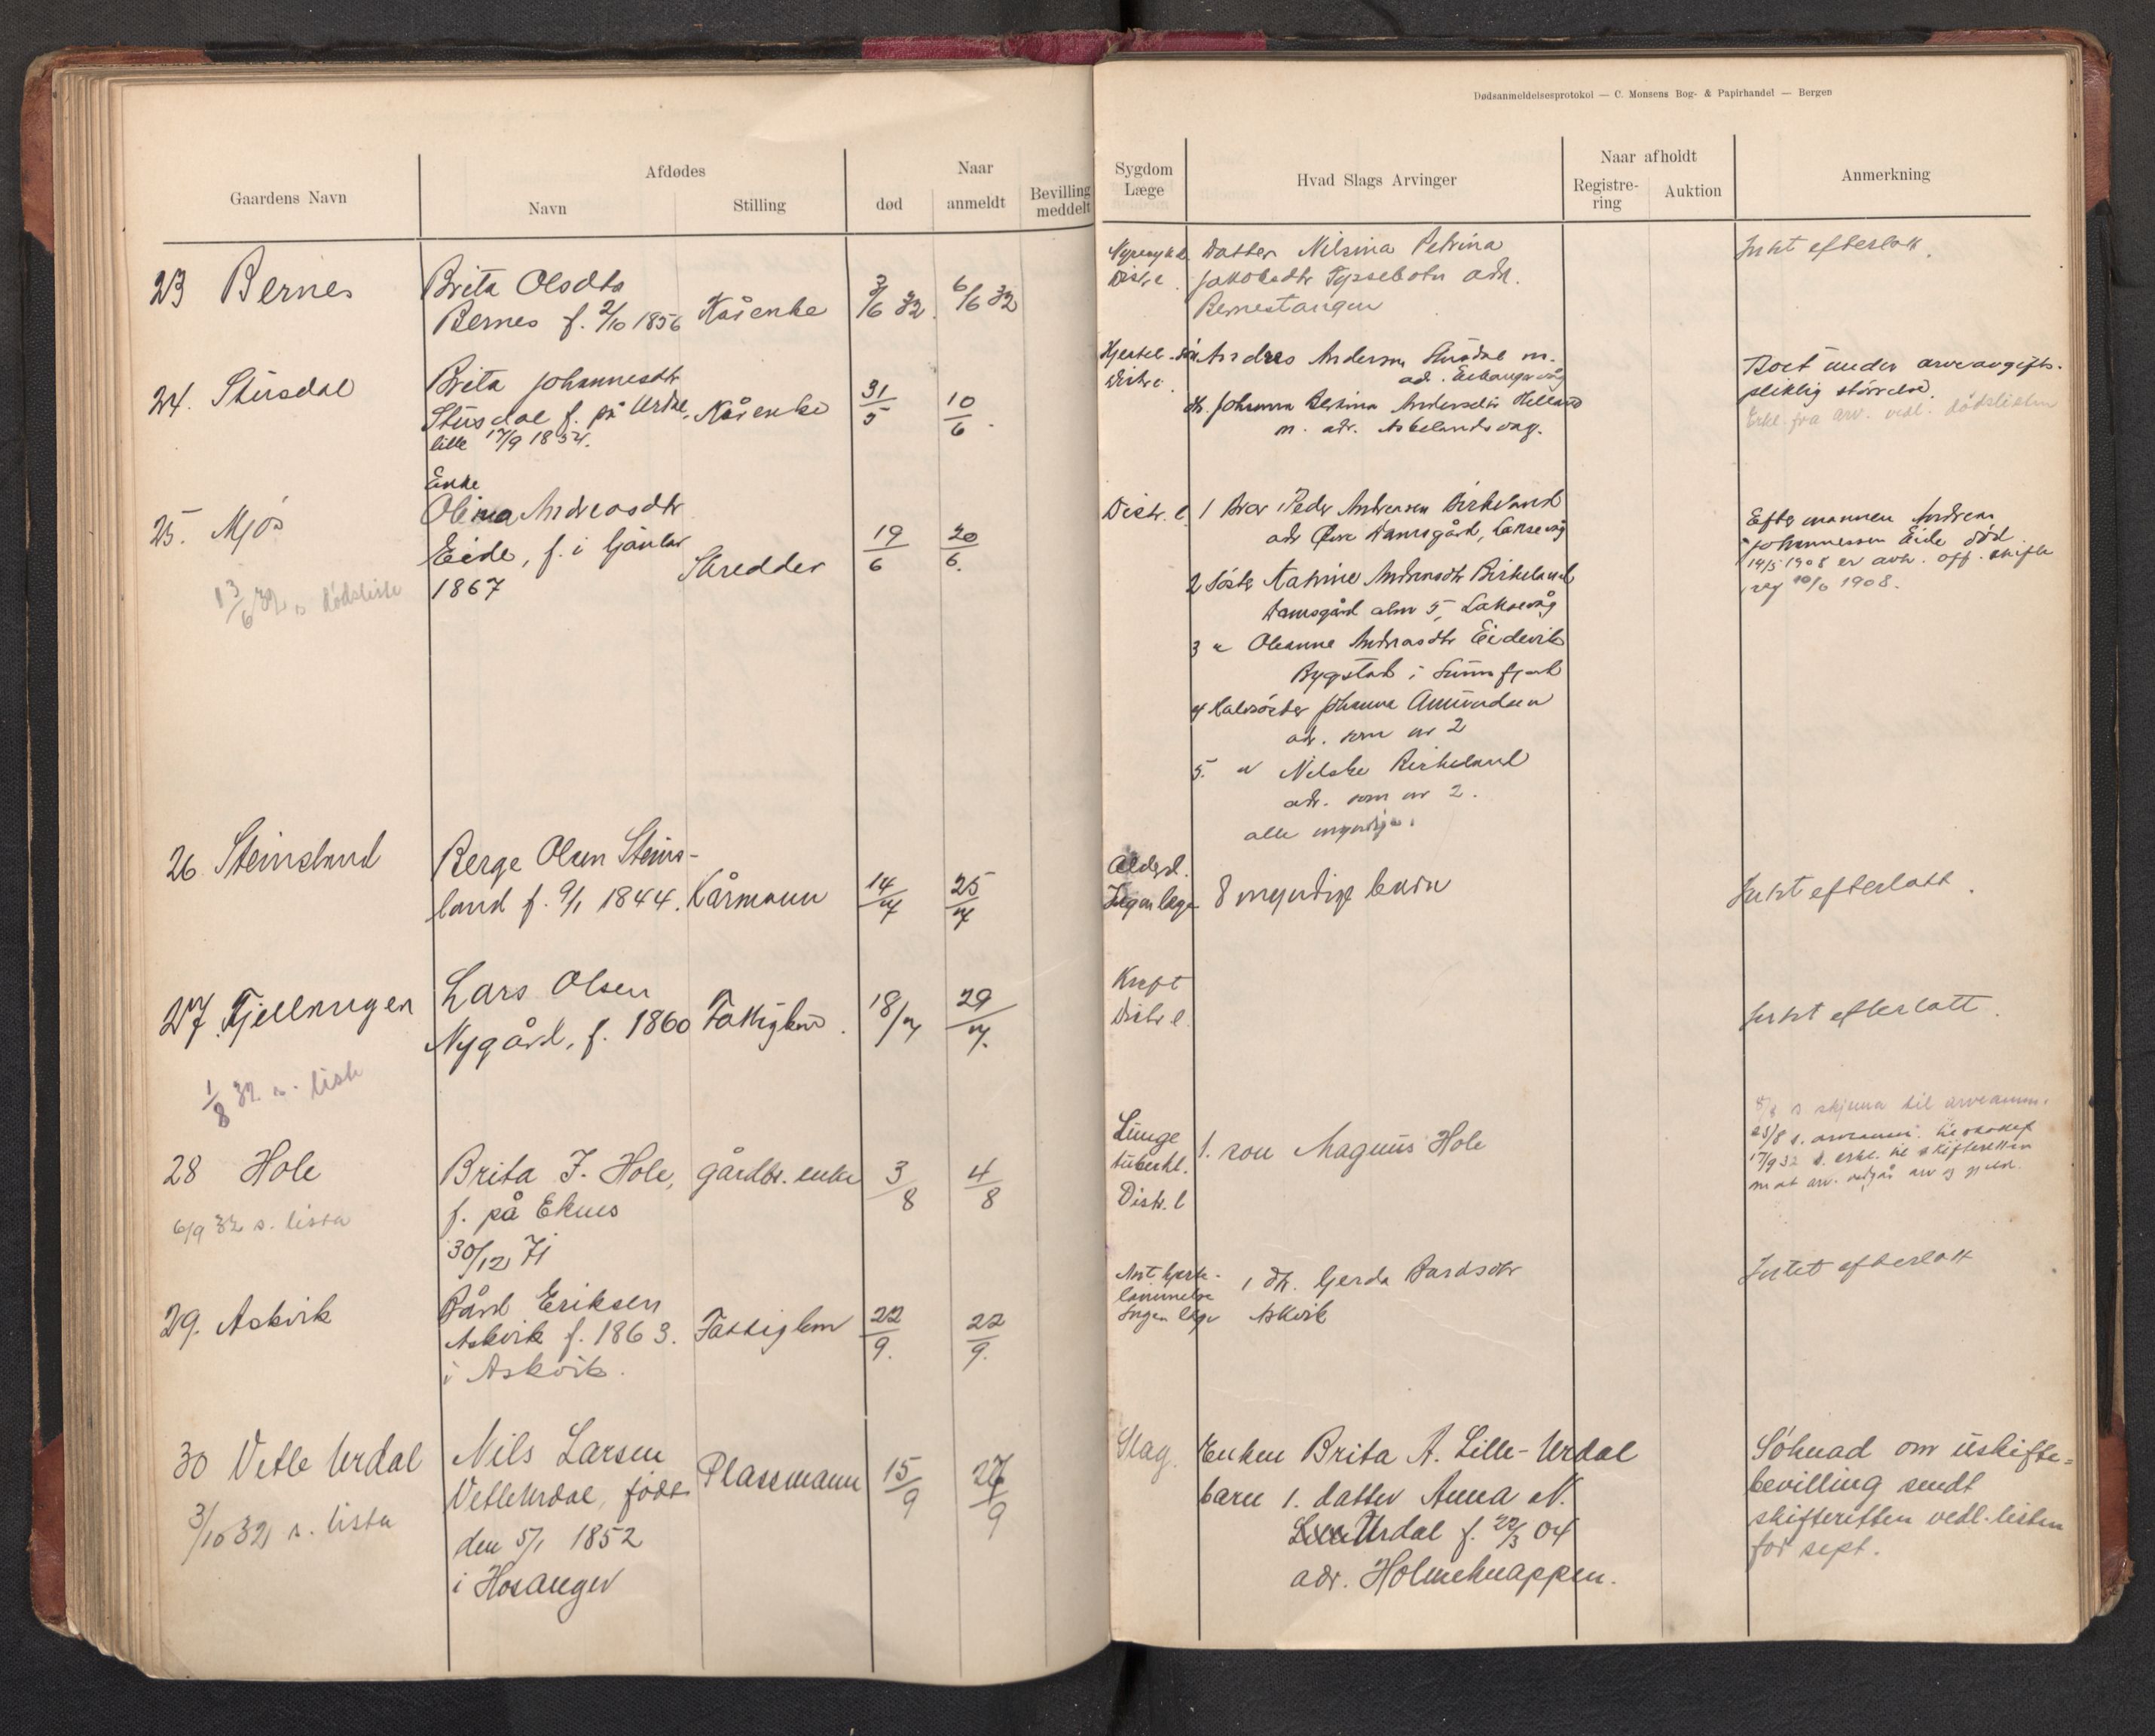 Dødsanmeldelsesprotokol — C. Monsens Bog- & Papirhandel — Bergen
Gaardens Navn
Afdødes
Navn
Stilling
Naar
død
anmeldt
Bevilling meddelt
Sygdom Læge
Hvad Slags Arvinger
Naar afholdt
Registrering
Auktion
Anmerkning
23 Bernes
Brita Olsdtr
Bernes f. 2/10 1856
Kårenke
3/6 32.
6/6 32
Nyresykd.
Distr. l.
Datter Nilsina Petrina
Jakobsdtr Typsebotn adr.
Bernestangen
Intet efterlatt.
24. Stusdal
Brita Johannesdtr
Stusdal f. på Urdal
lille 17/9 1854.
Kårenke
31/5
10/6.
Distr. l.
Andreas Andersen Stusdal m.
adr. Eikangervåg
dtr. Johanna Bertina Andersdtr Helland
m. adr. Askelandsvåg.
Boet under arveavgifts-
pliktig størrelse.
Erkl. fra arv. vedl. dødslisten
25. Mjøs
13/6 32 s. dødsliste
Enke
Olina Andreasdtr
Eide, f. i Gaular
1867
Skredder
19/6
20/6.
Distr. l.
1 Bror Peder Andreasen Birkeland
adr Øvre Damsgård, Laksevåg
2 Søster Katrine Andreasdtr Birkeland
Damsgård alm 5, Laksevåg
3 " Oleanne Andreasdtr Eidevik
Bygstad i Sunnfjord
4 Halvsøster Johanna Amundsen
adr. som nr 2
5. " Nilske Birkeland
adr. som nr 2.
alle myndige.
Efter mannen Andreas
Johannessen Eide død
14/5 1908 er avh. off. skifte
reg 10/6 1908.
26 Steinsland
Berge Olsen Steins-
land f. 9/1 1844.
Kårmann
14/7
25/7
Alderd.
Ingen læge
8 myndige barn
Intet efterlatt.
27. Fjellangen
1/8 32 s. liste
Lars Olsen
Nygård, f. 1860
Fattiglem.
18/7
29/7.
Kreft
Distr l.
Intet efterlatt.
28 Hole
6/9 32 s. lista
Brita J. Hole,
f. på Eknes
30/12 71
gårdbr. enke
3/8
4/8
Lunge
tuberkl.
Distr. l
1. son Magnus Hole
8/8 s skjema til arveanm.
17/9 32 s. erkl. til skifteretten
m at arv. vedgår arv og gjeld.
29. Askvik
Bård Eriksen
Askvik f. 1863.
i Askvik.
Fattiglem
22/9.
22/9.
Ant hjerte-
lammelse
Ingen læge
1 dtr. Gerda Bardsdtr
Askvik
Intet efterlatt
30 Vetle Urdal
3/10 32 s. lista
Nils Larsen
Vetleurdal, født
den 5/1 1852
i Hosanger
Plassmann
15/9
27/9
Slag.
Enken Brita A. Lille-Urdal
barn 1. datter Anna N.
Urdal f. 22/3 04
adr. Holmeknappen.
Søknad om uskifte-
bevilling sendt
skifteretten vedl. listen
for sept.